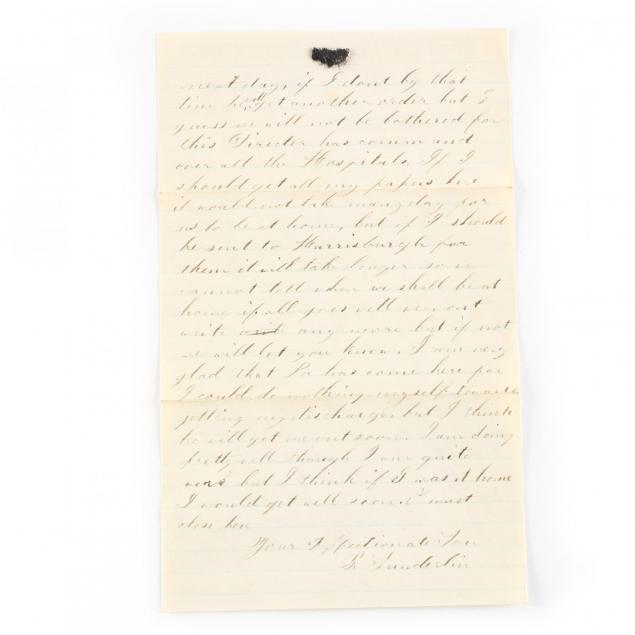 next day, if I dont by that
time he will get another order but I
guess we will not be bothered for
this Directer has command
over all the Hospitals. If I
should get all my papers here
it would not take many day for
us to be at home, but if I should
be sent to Harrisburgh for
them it will take longer so we
cannot tell when we shall be at
home if all goes well we wont
write any more but if not
we will let you know. I am very
glad that Pa has come here for
I could do nothing myself towards
getting my discharge, but I think
he will get me out soon. I am doing
pretty well though I am quite
weak but I think if I was at home
I would get well soon. I must
close here
Your Affectionate Son
S. Sunderlin